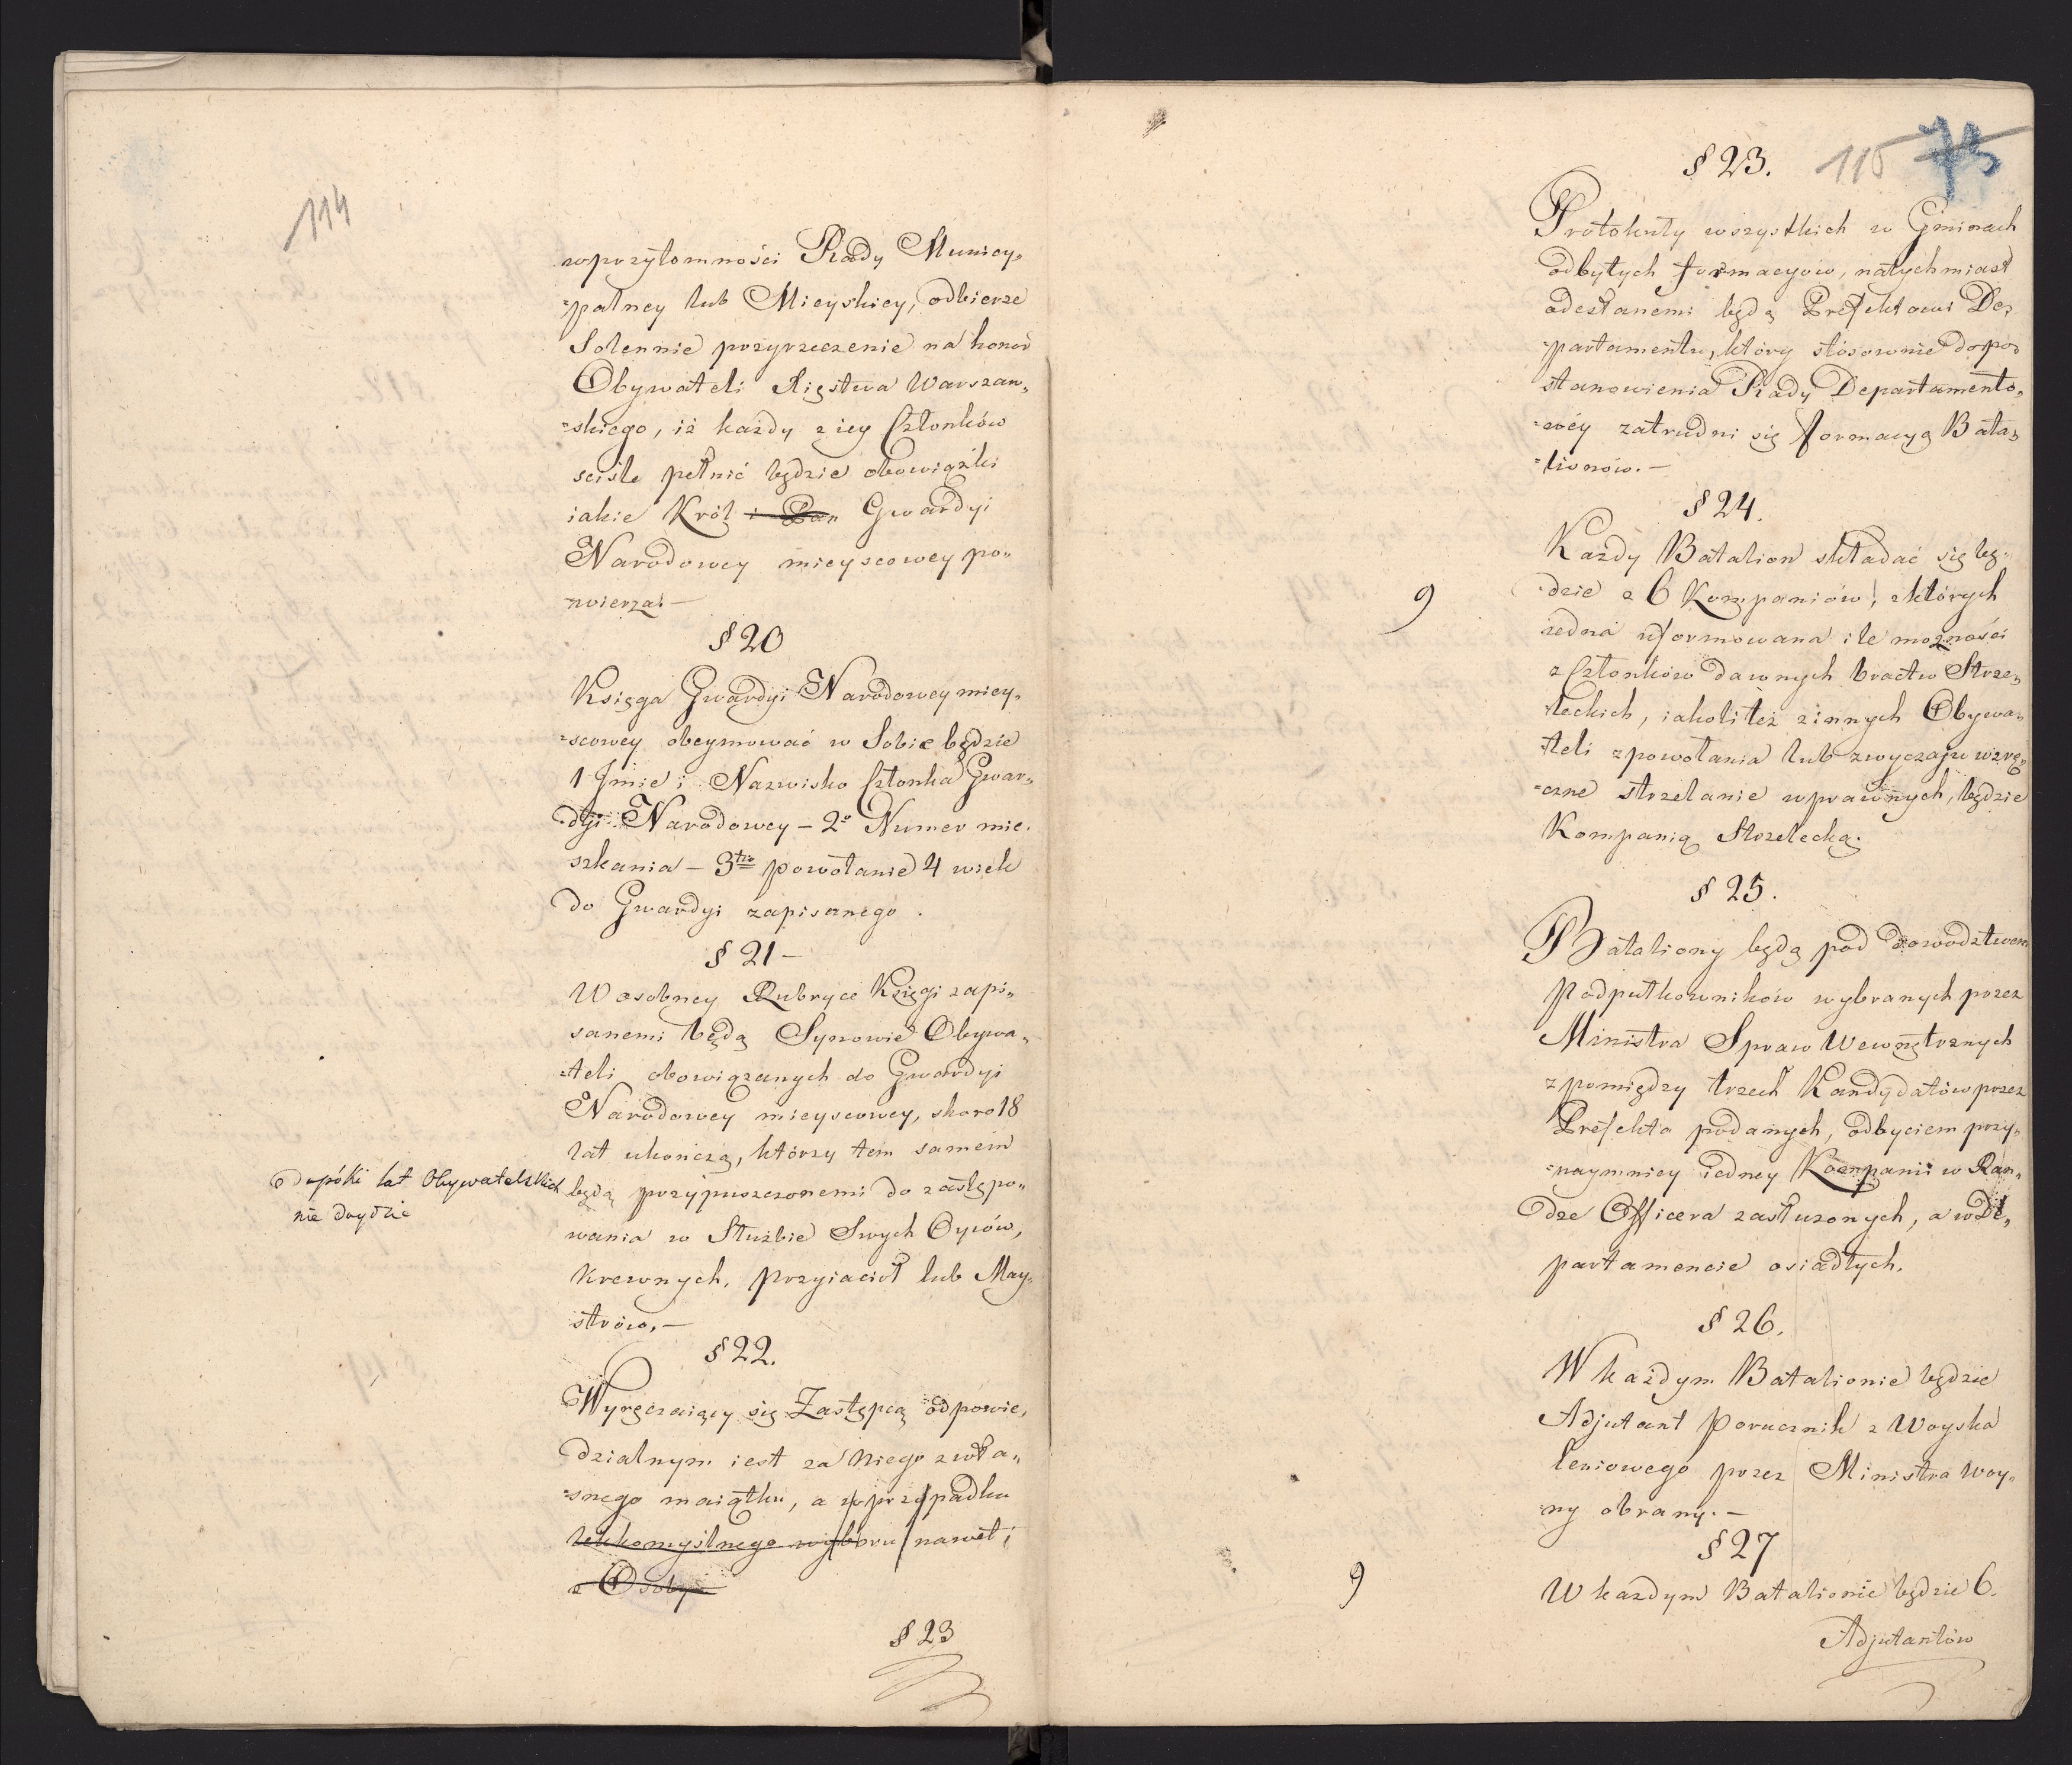 114
w przytomności Rady Municy„
„palney lub Mieyskiey, odbierze
Solennie przyrzeczenie na honor
Obywateli Xięstwa Warszaw„
„skiego, iż każdy z iey Członków
sciśle pełnić będzie obowiązki
iakie Król i Pan Gwardyi
Narodowey mieyscowey po„
wierza. —
§ 20
Księga Gwardyi Narodowey miey„
„scowey obeymować w Sobie będzie
1 Jmie i Nazwisko Członka Gwar„
dyi Narodowey – 2º Numer mie„
szkania – 3tio powołanie 4 wiek
do Gwardyi zapisanego.
§ 21 –
W osobney Rubryce Księgi zapi„
sanemi będą Synowie Obywa„
„teli obowiązanych do Gwardyi
Narodowey mieyscowey, skoro 18
lat ukończą, którzy tem samem
Dopóki lat Obywatelskich
nie doydzie
będą przypuszczonemi do zastępo„
wania w Służbie Swych Oyców,
Krewnych, przyiaciół lub May„
strów. —
§ 22.
Wyręczaiący się Zastępcą odpowie„
dzialnym iest za niego z wła„
„snego maiątku, a w przypadku
lekkomyślnego wyboru nawet i
z Osoby
§ 23
115 73
§ 23.
Protokuły wszystkich w Gminach
odbytych formacyów, natychmiast
odesłanemi będą Prefektowi De„
„partamentu, który stósownie do po„
stanowienia Rady Departamento„
„wéy zatrudni się formacyą Bata„
„lionów. —
§ 24.
Każdy Batalion składać się bę„
dzie z 6 Kompaniów, z których
9
iedna uformowana ile możności
z Członków dawnych bractw Strze„
leckich, iakoliteż z innych Obywa„
teli z powołania lub zwyczaju w zrę„
„czne strzelanie wprawnych, będzie
Kompanią Strzelecką.
§ 25.
Bataliony będą pod dowództwem
Podpułkowników wybranych przez
Ministra Spraw Wewnętrznych
z pomiędzy trzech Kandydatów przez
Prefekta podanych, odbyciem przy„
„naymniey iedney Kampanii w Ran„
dze Officera zasłużonych, a w De„
partamencie osiadłych.
§ 26.
W każdym Batalionie będzie
Adjutant Porucznik z Woyska
liniowego przez Ministra Woy„
ny obrany. —
§ 27
W każdym Batalionie będzie 6.
9
Adjutantów